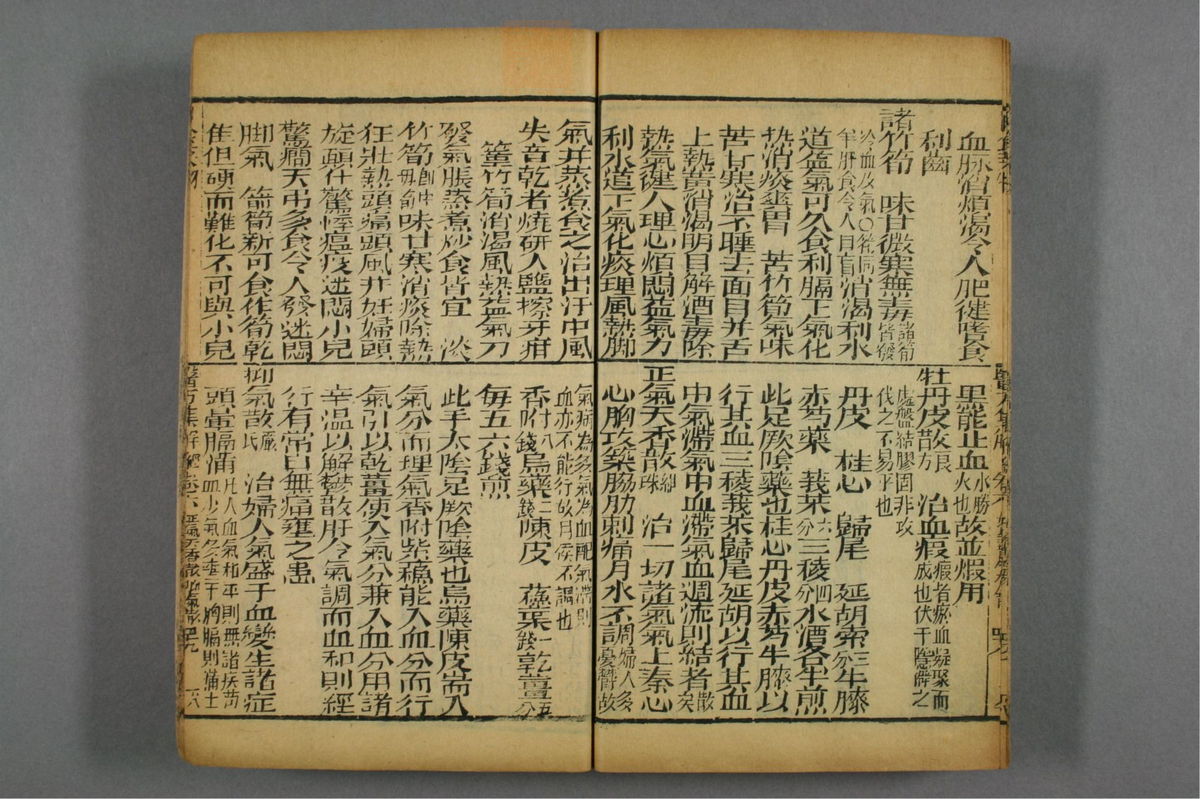 血脉消煩渴令人肥健嗜食
利齒
諸竹筍 味甘微寒無毒諸筍皆發
冷血及氣○筍同羊肝食令人目盲消渴利水
道益氣可久食利膈下氣化
熱消痰爽胃 苦竹筍氣味
苦甘寒治不睡去面目并舌
上熱黃消渴明目解酒毒除
熱氣健人理心煩悶益氣力
利水道下氣化痰理風熱脚
氣并蒸煮食之治出汗中風
失音乾者燒研入鹽擦牙疳
篁竹筍消渴風熱益氣力
發氣脹蒸煮炒食皆宜 淡
竹筍味甘寒消痰除熱
狂壯熱頭痛頭風并妊婦頭
旋顛仆驚悸瘟疫迷悶小兒
驚癇天弔多食令人發迷悶
脚氣 箭筍新可食作筍乾
佳但硬而難化不可與小兒
黑能止血水勝火也故並煅用
牡丹皮散良方 治血瘕瘕者瘀血凝聚而成也伏于隱僻之
處盤結膠固非攻伐之不易平也
丹皮 桂心 歸尾 延胡索三分牛膝
赤芍藥 莪茱六分三稜四分水酒各半煎
此足厥陰藥也桂心丹皮赤芍牛膝以
行其血三稜莪茱歸尾延胡以行其血
中氣滯氣中血滯氣血週流則結者散矣
正氣天香散綿珠 治一切諸氣氣上湊心
心胸攻築脇肋刺痛月水不調婦人多憂鬱故
氣病為多氣為血配氣滯則血亦不能行故月候不調也
香附八錢烏藥二錢陳皮 蘇葉一錢乾薑五分
每五六錢煎
此手太陰足厥陰藥也烏藥陳皮耑入
氣分而理氣香附紫蘇能入血分而行
氣引以乾薑使入氣分兼入血分用諸
辛溫以解鬱散肝令氣調而血和則經
行有常自無痛壅之患
抑氣散嚴氏 治婦人氣盛于血變生諸症
頭暈膈滿凡人血氣和平則無諸疾苦血少氣多壅于胸膈則滿上